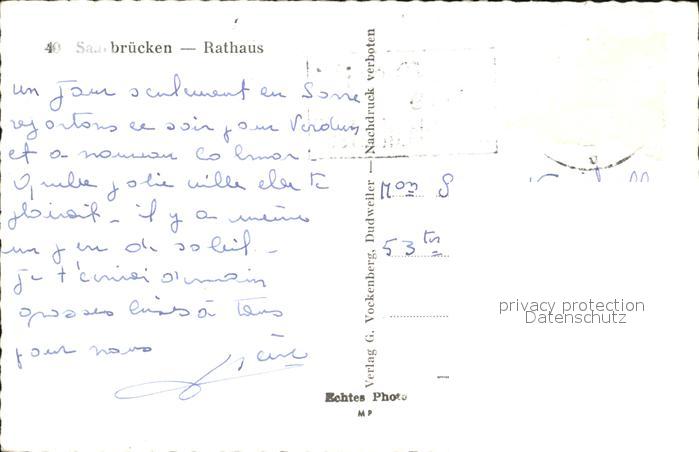 40 Saarbrücken — Rathaus
un jour seulement en Sarre
repartons ce soir pour Verdun
et a nouveau Colmar :
Quelle jolie ville elle te
plairait - il y a même
un peu de soleil -
je t'écrirai demain
grosses bises à tous
pour nous
Verlag G. Vockenberg, Dudweiler — Nachdruck verboten
Mon S
53 ter
privacy protection
Datenschutz
Echtes Photo
MP